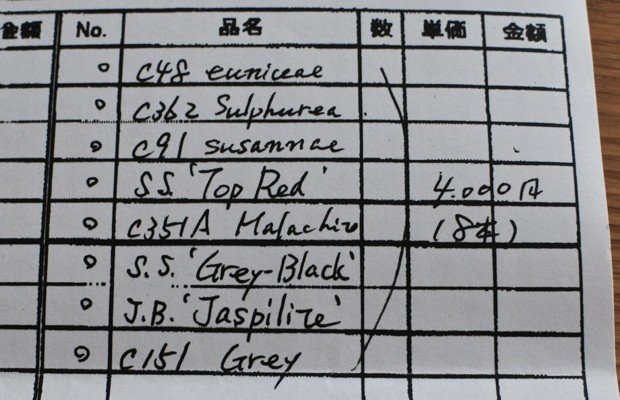 金額 No. 品名 数 単価 金額
○ C48 euniceae
○ C362 Sulphurea
○ C91 susannae
○ S.S. 'Top Red' 4.000円
○ C351A Malachite (8本)
○ S.S. 'Grey-Black'
○ J.B. 'Jaspilite'
○ C151 Grey